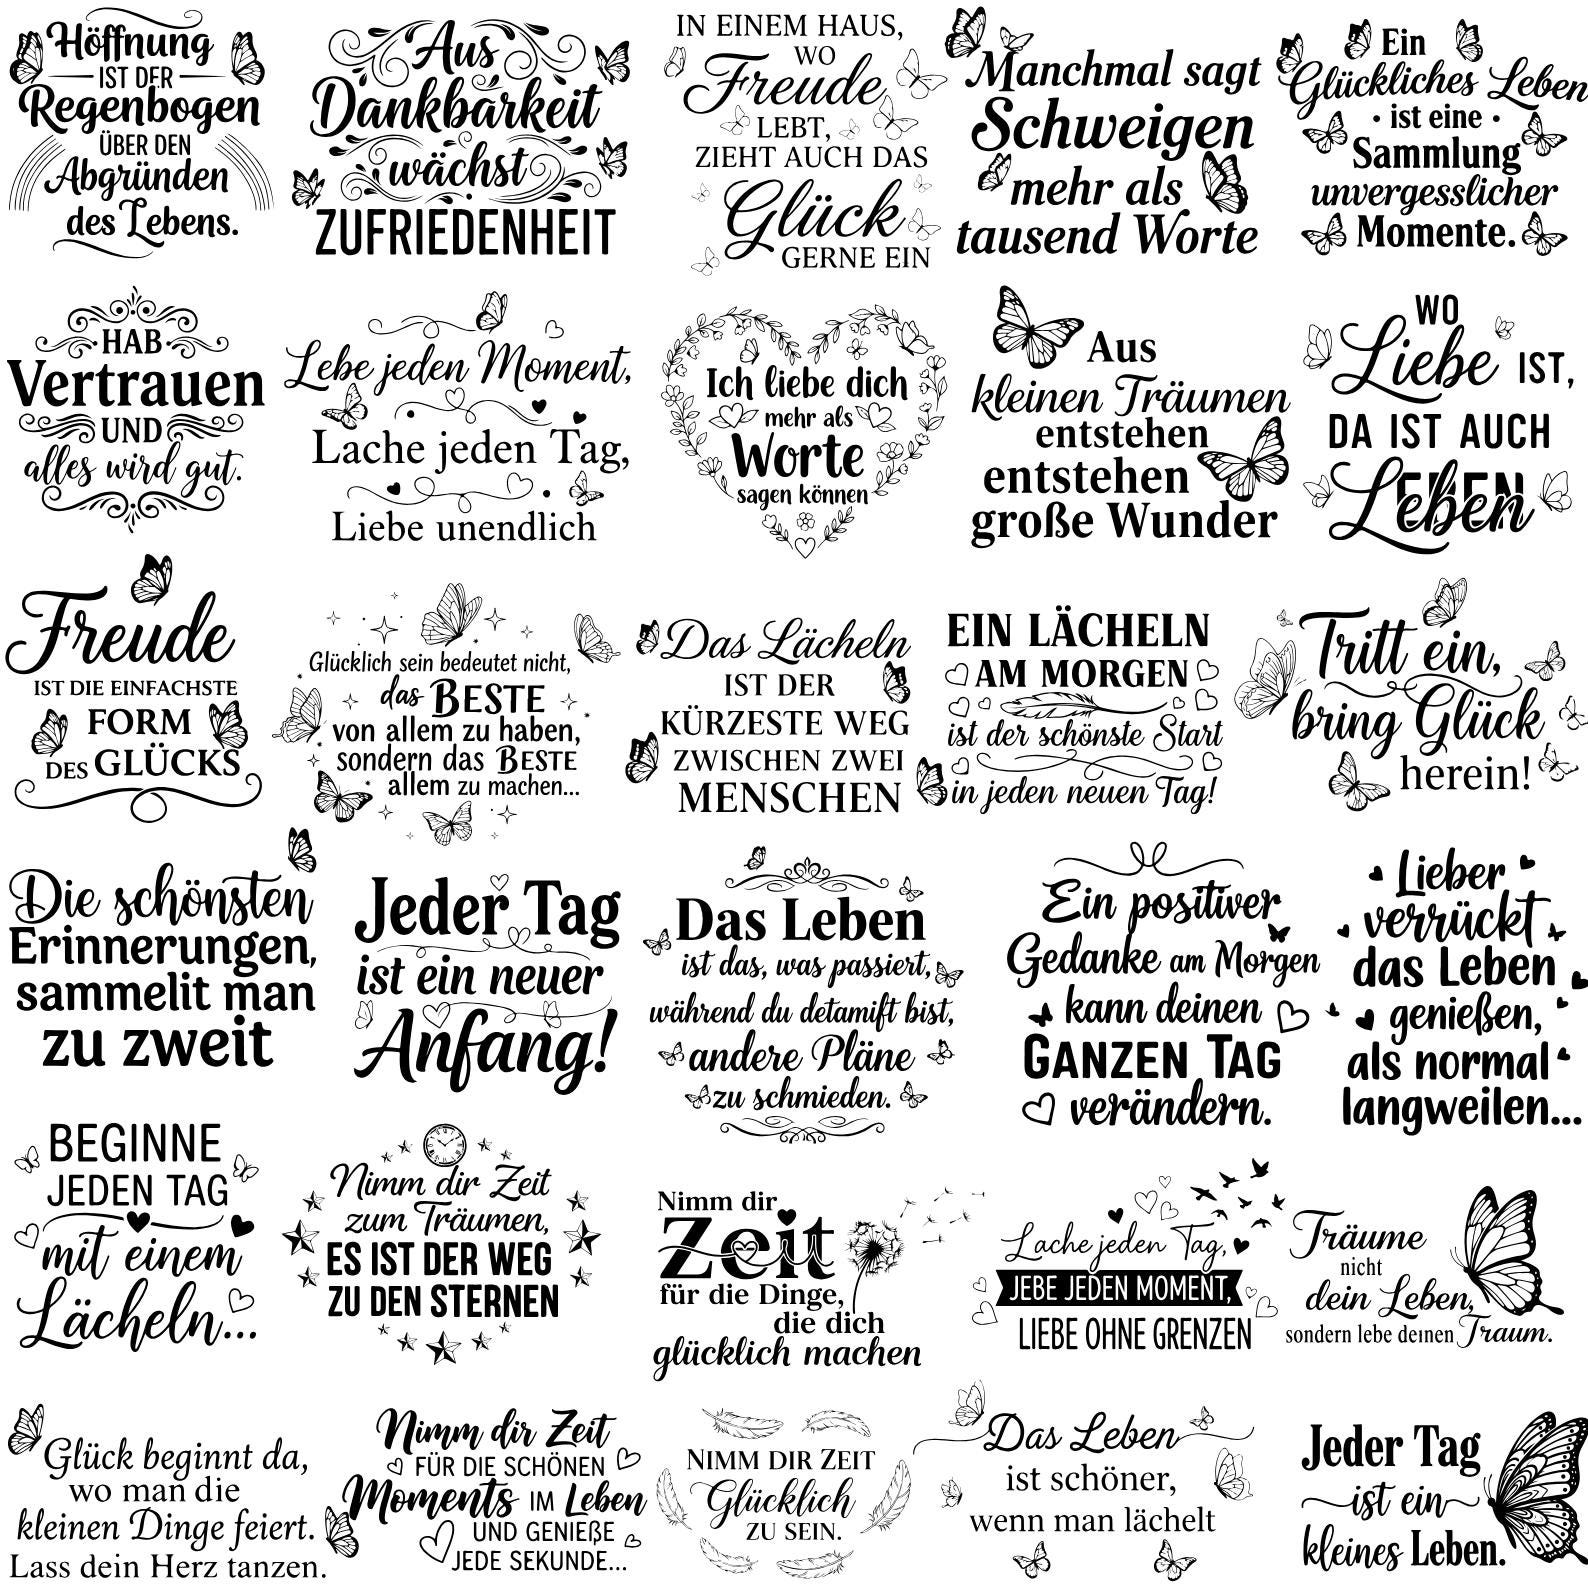 Höffnung
IST DER
Regenbogen
ÜBER DEN
Abgründen
des Lebens.
Aus
Dankbarkeit
wächst
ZUFRIEDENHEIT
IN EINEM HAUS,
WO
Freude
LEBT,
ZIEHT AUCH DAS
Glück
GERNE EIN
Manchmal sagt
Schweigen
mehr als
tausend Worte
Ein
Glückliches Leben
· ist eine ·
Sammlung
unvergesslicher
Momente.
HAB
Vertrauen
UND
alles wird gut.
Lebe jeden Moment,
Lache jeden Tag,
Liebe unendlich
Ich liebe dich
mehr als
Worte
sagen können
Aus
kleinen Träumen
entstehen
entstehen
große Wunder
WO
Liebe IST,
DA IST AUCH
Leben
Freude
IST DIE EINFACHSTE
FORM
DES GLÜCKS
Glücklich sein bedeutet nicht,
das BESTE
von allem zu haben,
sondern das BESTE
allem zu machen...
Das Lächeln
IST DER
KÜRZESTE WEG
ZWISCHEN ZWEI
MENSCHEN
EIN LÄCHELN
AM MORGEN
ist der schönste Start
in jeden neuen Tag!
Tritt ein,
bring Glück
herein!
Die schönsten
Erinnerungen,
sammelit man
zu zweit
Jeder Tag
ist ein neuer
Anfang!
Das Leben
ist das, was passiert,
während du detamift bist,
andere Pläne
zu schmieden.
Ein positiver
Gedanke am Morgen
kann deinen
GANZEN TAG
verändern.
Lieber
verrückt
das Leben
genießen,
als normal
langweilen...
BEGINNE
JEDEN TAG
mit einem
Lächeln...
Nimm dir Zeit
zum Träumen,
ES IST DER WEG
ZU DEN STERNEN
Nimm dir
Zeit
für die Dinge,
die dich
glücklich machen
Lache jeden Tag,
JEBE JEDEN MOMENT,
LIEBE OHNE GRENZEN
Träume
nicht
dein Leben,
sondern lebe deinen Traum.
Glück beginnt da,
wo man die
kleinen Dinge feiert.
Lass dein Herz tanzen.
Nimm dir Zeit
FÜR DIE SCHÖNEN
Moments IM Leben
UND GENIEßE
JEDE SEKUNDE...
NIMM DIR ZEIT
Glücklich
ZU SEIN.
Das Leben
ist schöner,
wenn man lächelt
Jeder Tag
ist ein
kleines Leben.